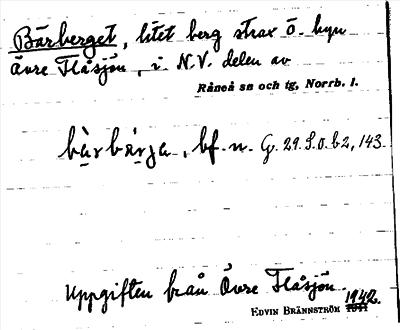 Bärberget, litet berg strax ö. byn
Övre Flåsjön, i N.V. delen av
Råneå sn och tg, Norrb. l.
bf. n. G. 29. S. o. b 2, 143.
Uppgiften från Övre Flåsjön.
EDVIN BRÄNNSTRÖM 1942.